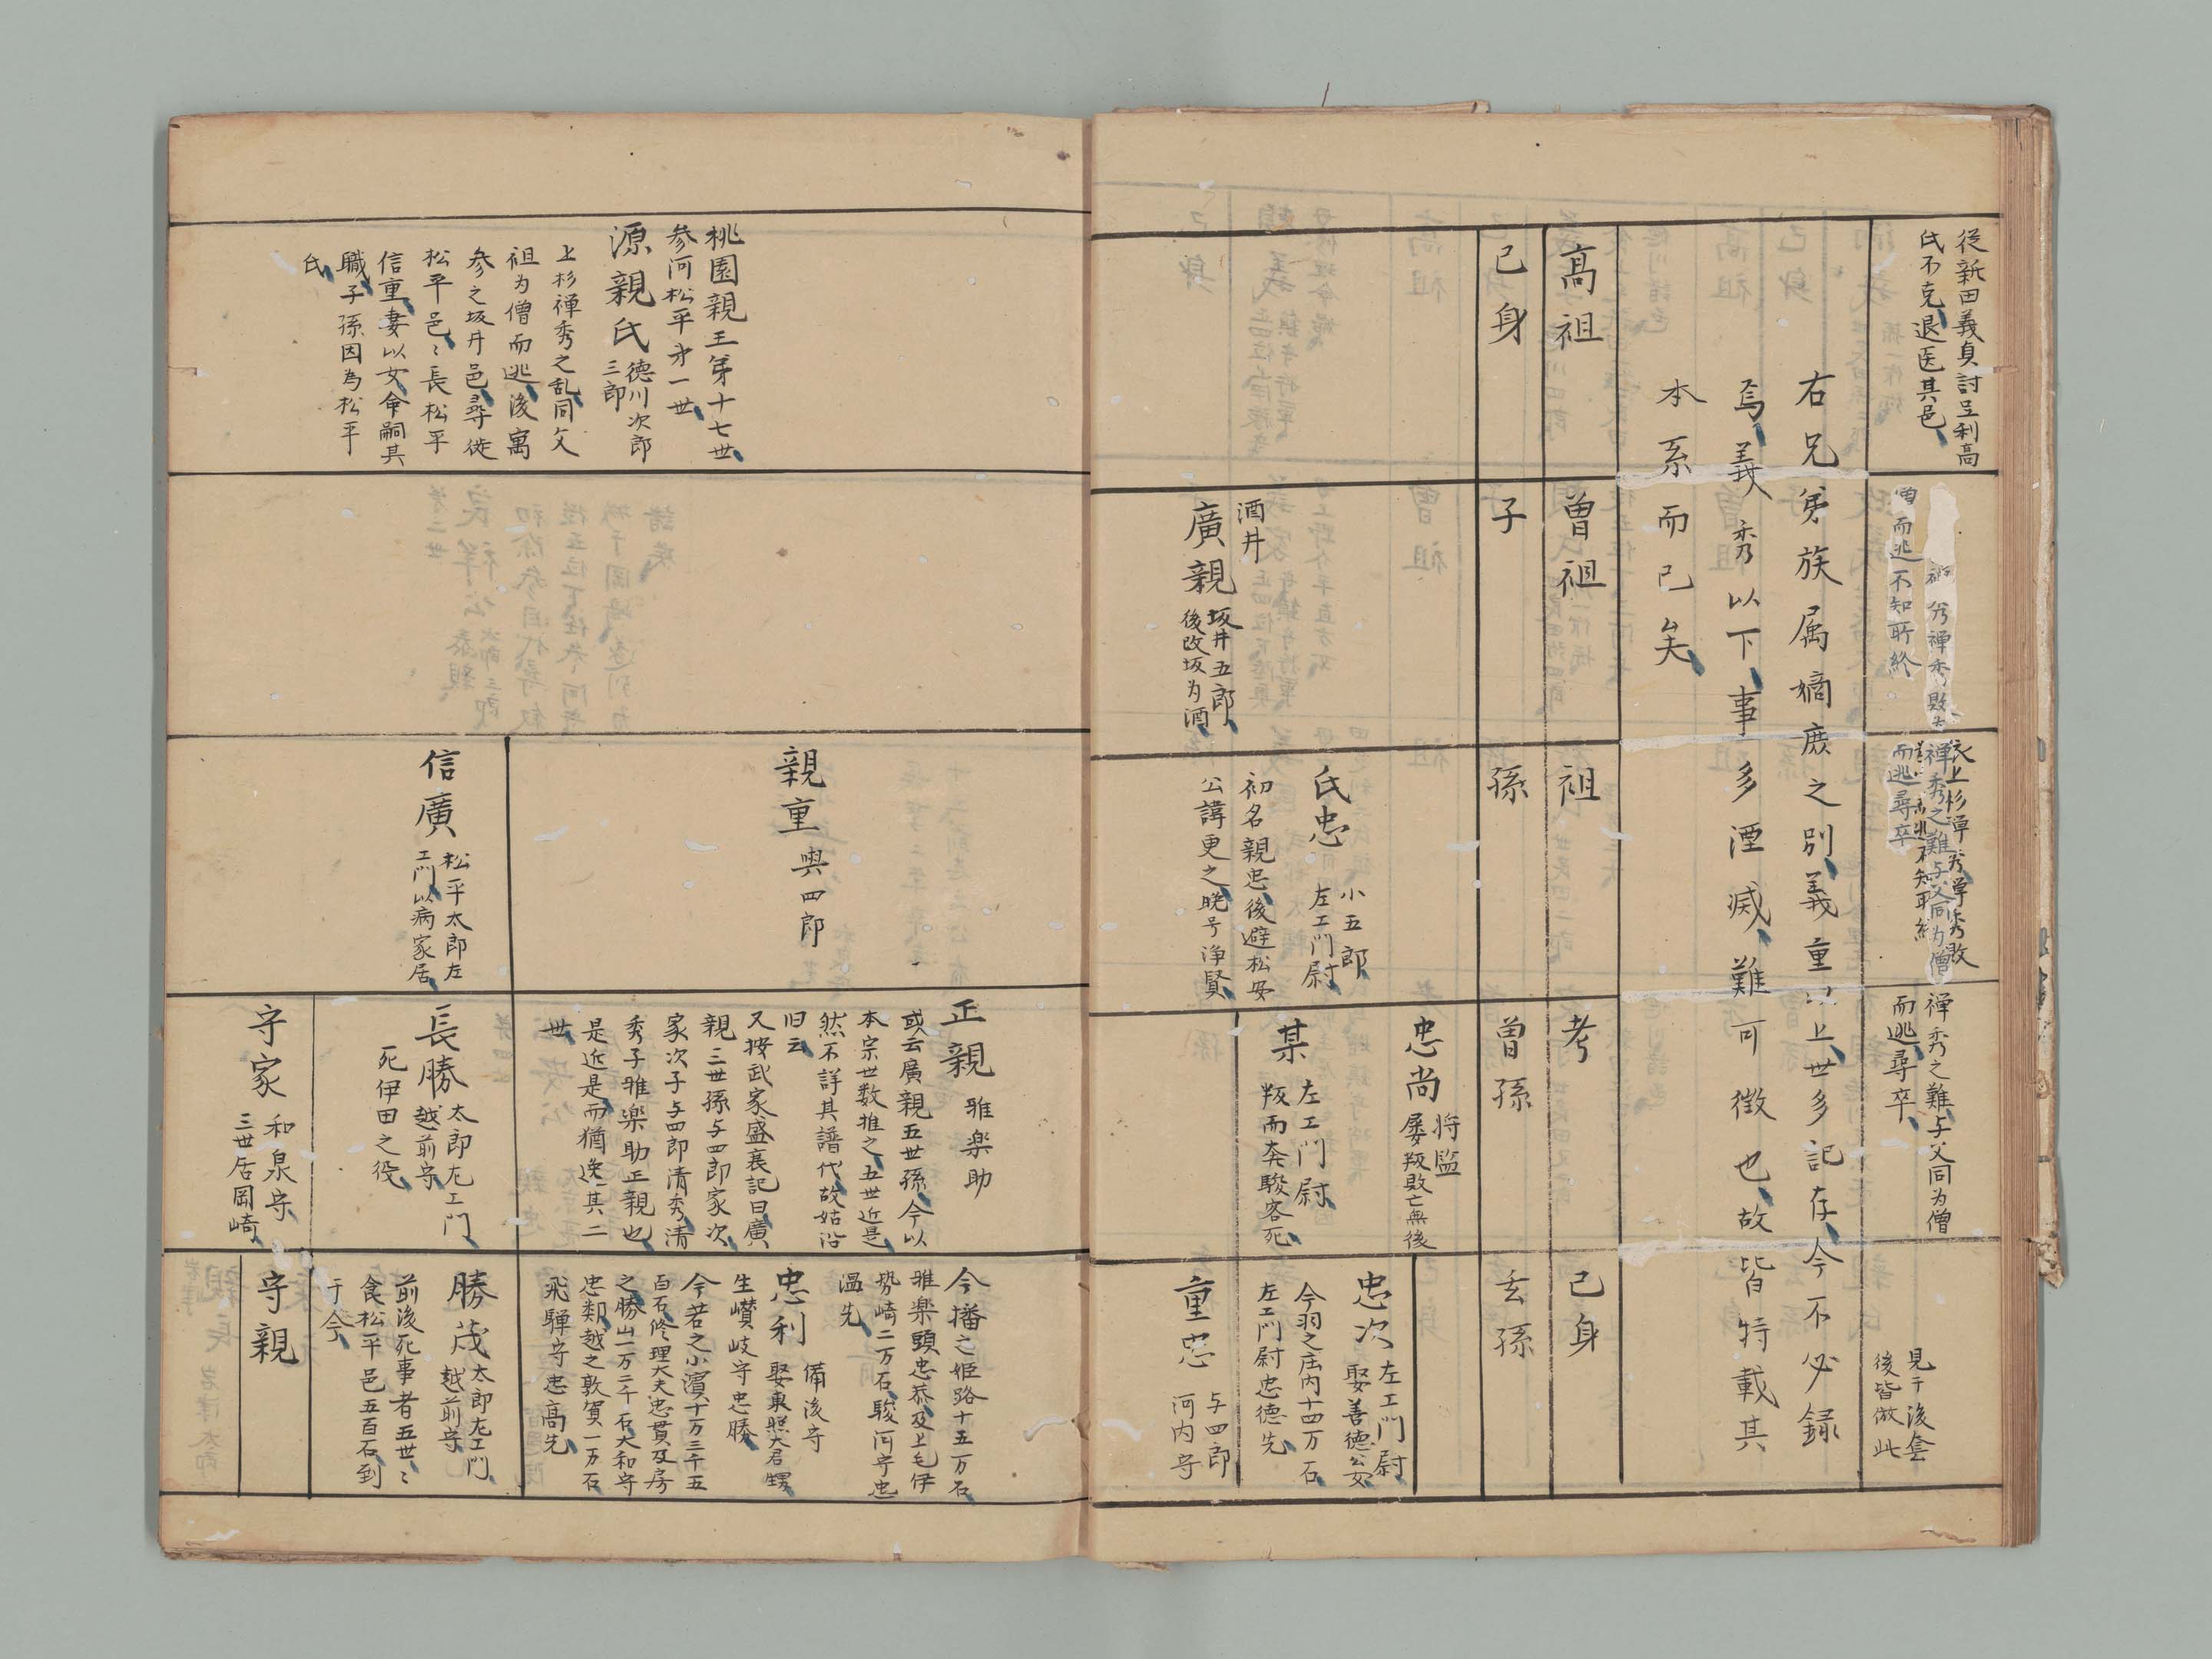 従新田義貞討足利高
氏不克退匿其邑
秀禅秀敗為
僧而逃不知所終
禅秀之難与父同為僧
而逃尋卒
禅秀之難与父同為僧
而逃尋卒
見于後套
後皆倣此
右兄弟族属嫡庶之別義重以上世多記存今不必録
焉義秀以下事多湮滅難可徴也故皆特載其
本系而已矣
高祖
曽祖
祖
考
己身
己身
子
孫
曽孫
玄孫
酒井
廣親 坂井五郎
後改坂为酒
氏忠 小五郎
左エ門尉
初名親忠後避松安
公諱更之晩号浄賢
忠尚 将監
屡叛敗亡無後
某 左エ門尉
叛而奔駿客死
忠次 左エ門尉
娶善徳公女
今羽之庄内十四万石
左エ門尉忠徳先
重忠 与四郎
河内守
桃園親王第十七世
参河松平才一世
源親氏 徳川次郎
三郎
上杉禅秀之乱同父
祖为僧而逃後寓
参之坂井邑尋徙
松平邑〻長松平
信重妻以女命嗣其
職子孫因为松平
氏
親重 與四郎
信廣 松平太郎左
エ門以病家居
正親 雅楽助
或云廣親五世孫今以
本宗世数推之五世近是
然不詳其譜代故姑沿
旧云
又按武家盛衰記曰廣
親三世孫与四郎家次
家次子与四郎清秀清
秀子雅楽助正親也
是近是而猶逸其二
世
長勝 太郎左エ門
越前守
死伊田之役
守家 和泉守
三世居岡崎
今播之姫路十五万石
雅楽頭忠恭及上毛伊
势崎二万石駿河守忠
温先
忠利 備後守
娶東照大君甥
生讃岐守忠勝
今若之小濱十万三千五
百石修理大夫忠貫及房
之勝山一万二千石大和守
忠鄰越之敦賀一万石
飛騨守忠高先
勝茂 太郎左エ門
越前守
前後死事者五世〻
食松平邑五百石到
于今
守親